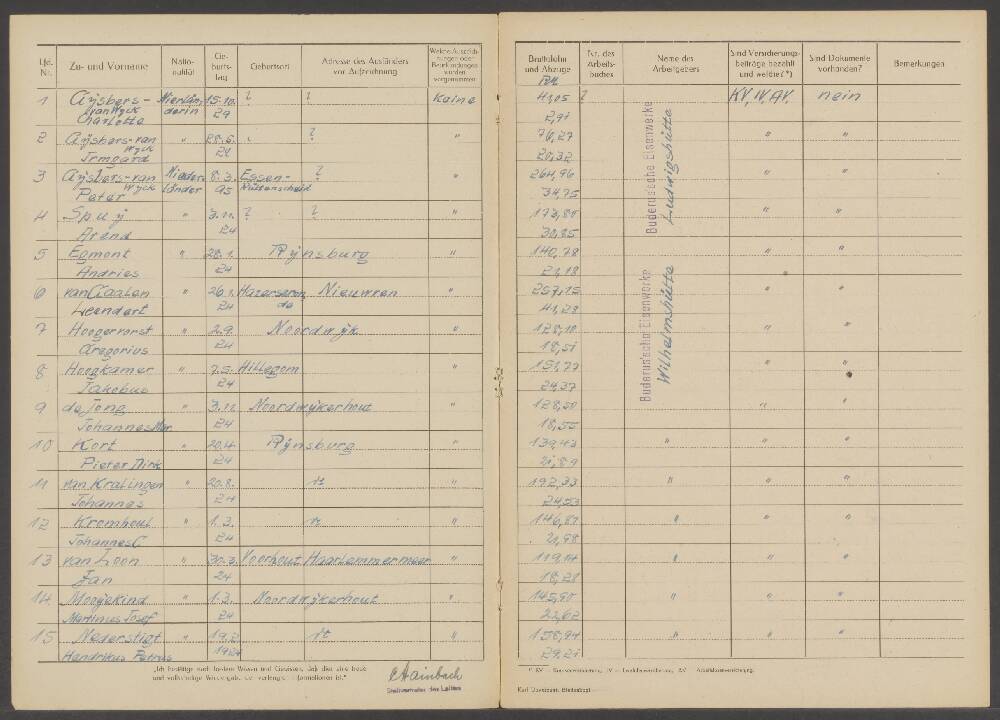 Lfd. Nr. Zu- und Vorname Natio- nalität Ge- burts- tag Geburtsort Adresse des Ausländers vor Aufzeichnung Welche Aufzeich- nungen oder Beurkundungen wurden vorgenommen
1 Gÿsbers- van Wyck Charlotte Niederlän- derin 15.10. 29 ? ? Keine
2 Gÿsbers-van Wyck Irmgard " 28.6. 24 " ? "
3 Gÿsbers-van Wyck Peter Nieder- länder 8.3. 95 Essen- Rüttenscheid ? "
4 Spuÿ Arend " 3.11. 24 ? ? "
5 Egmont Andries " 28.1. 24 Rÿnsburg "
6 van Gaalen Leendert " 26.1. 24 Hazerswou- de Nieuwveen "
7 Hoogervorst Gregorius " 2.9. 24 Noordwÿk "
8 Hoogkamer Jakobus " 7.5. 24 Hillegom "
9 de Jong Johannes Mar. " 3.11. 24 Noordwÿkerhout "
10 Kort Pieter Dirk " 20.4. 24 Rÿnsburg "
11 van Kralingen Johannes " 20.8. 24 " "
12 Kromhout Johannes C. " 1.3. 24 " "
13 van Loon Jan " 30.3. 24 Voorhout Haarlemmermeer "
14 Mooÿekind Martinus Josef " 1.3. 24 Noordwÿkerhout "
15 Nederstigt Hendrikus Petrus " 19.2. 1924 " "
„Ich bestätige nach bestem Wissen und Gewissen, daß dies eine treue
und vollständige Wiedergabe der verlangten Informationen ist."
Hainbach
Stellvertreter des Leiters
Bruttolohn und Abzüge RM Nr. des Arbeits- buches Name des Arbeitgebers Sind Versicherungs- beiträge bezahlt und welche? *) Sind Dokumente vorhanden? Bemerkungen
41,05 ? KV, IV, AV. nein
2,91
76,27 " "
20,32
264,96 " "
34,75
173,80 " "
30,85
140,78 " "
21,18
257,15 " "
41,23
128,10 " "
18,51
151,77
24,37
128,50 " "
18,55
139,43 " " "
21,89
192,33 " " "
24,53
146,81 " " "
21,98
119,14 " " "
18,21
145,90 " " "
22,62
158,94 " " "
29,21
Buderus'sche Eisenwerke
Ludwigshütte
Buderus'sche Eisenwerke
Wilhelmshütte
*) KV — Krankenversicherung, IV — Invalidenversicherung, AV — Arbeitslosenversicherung.